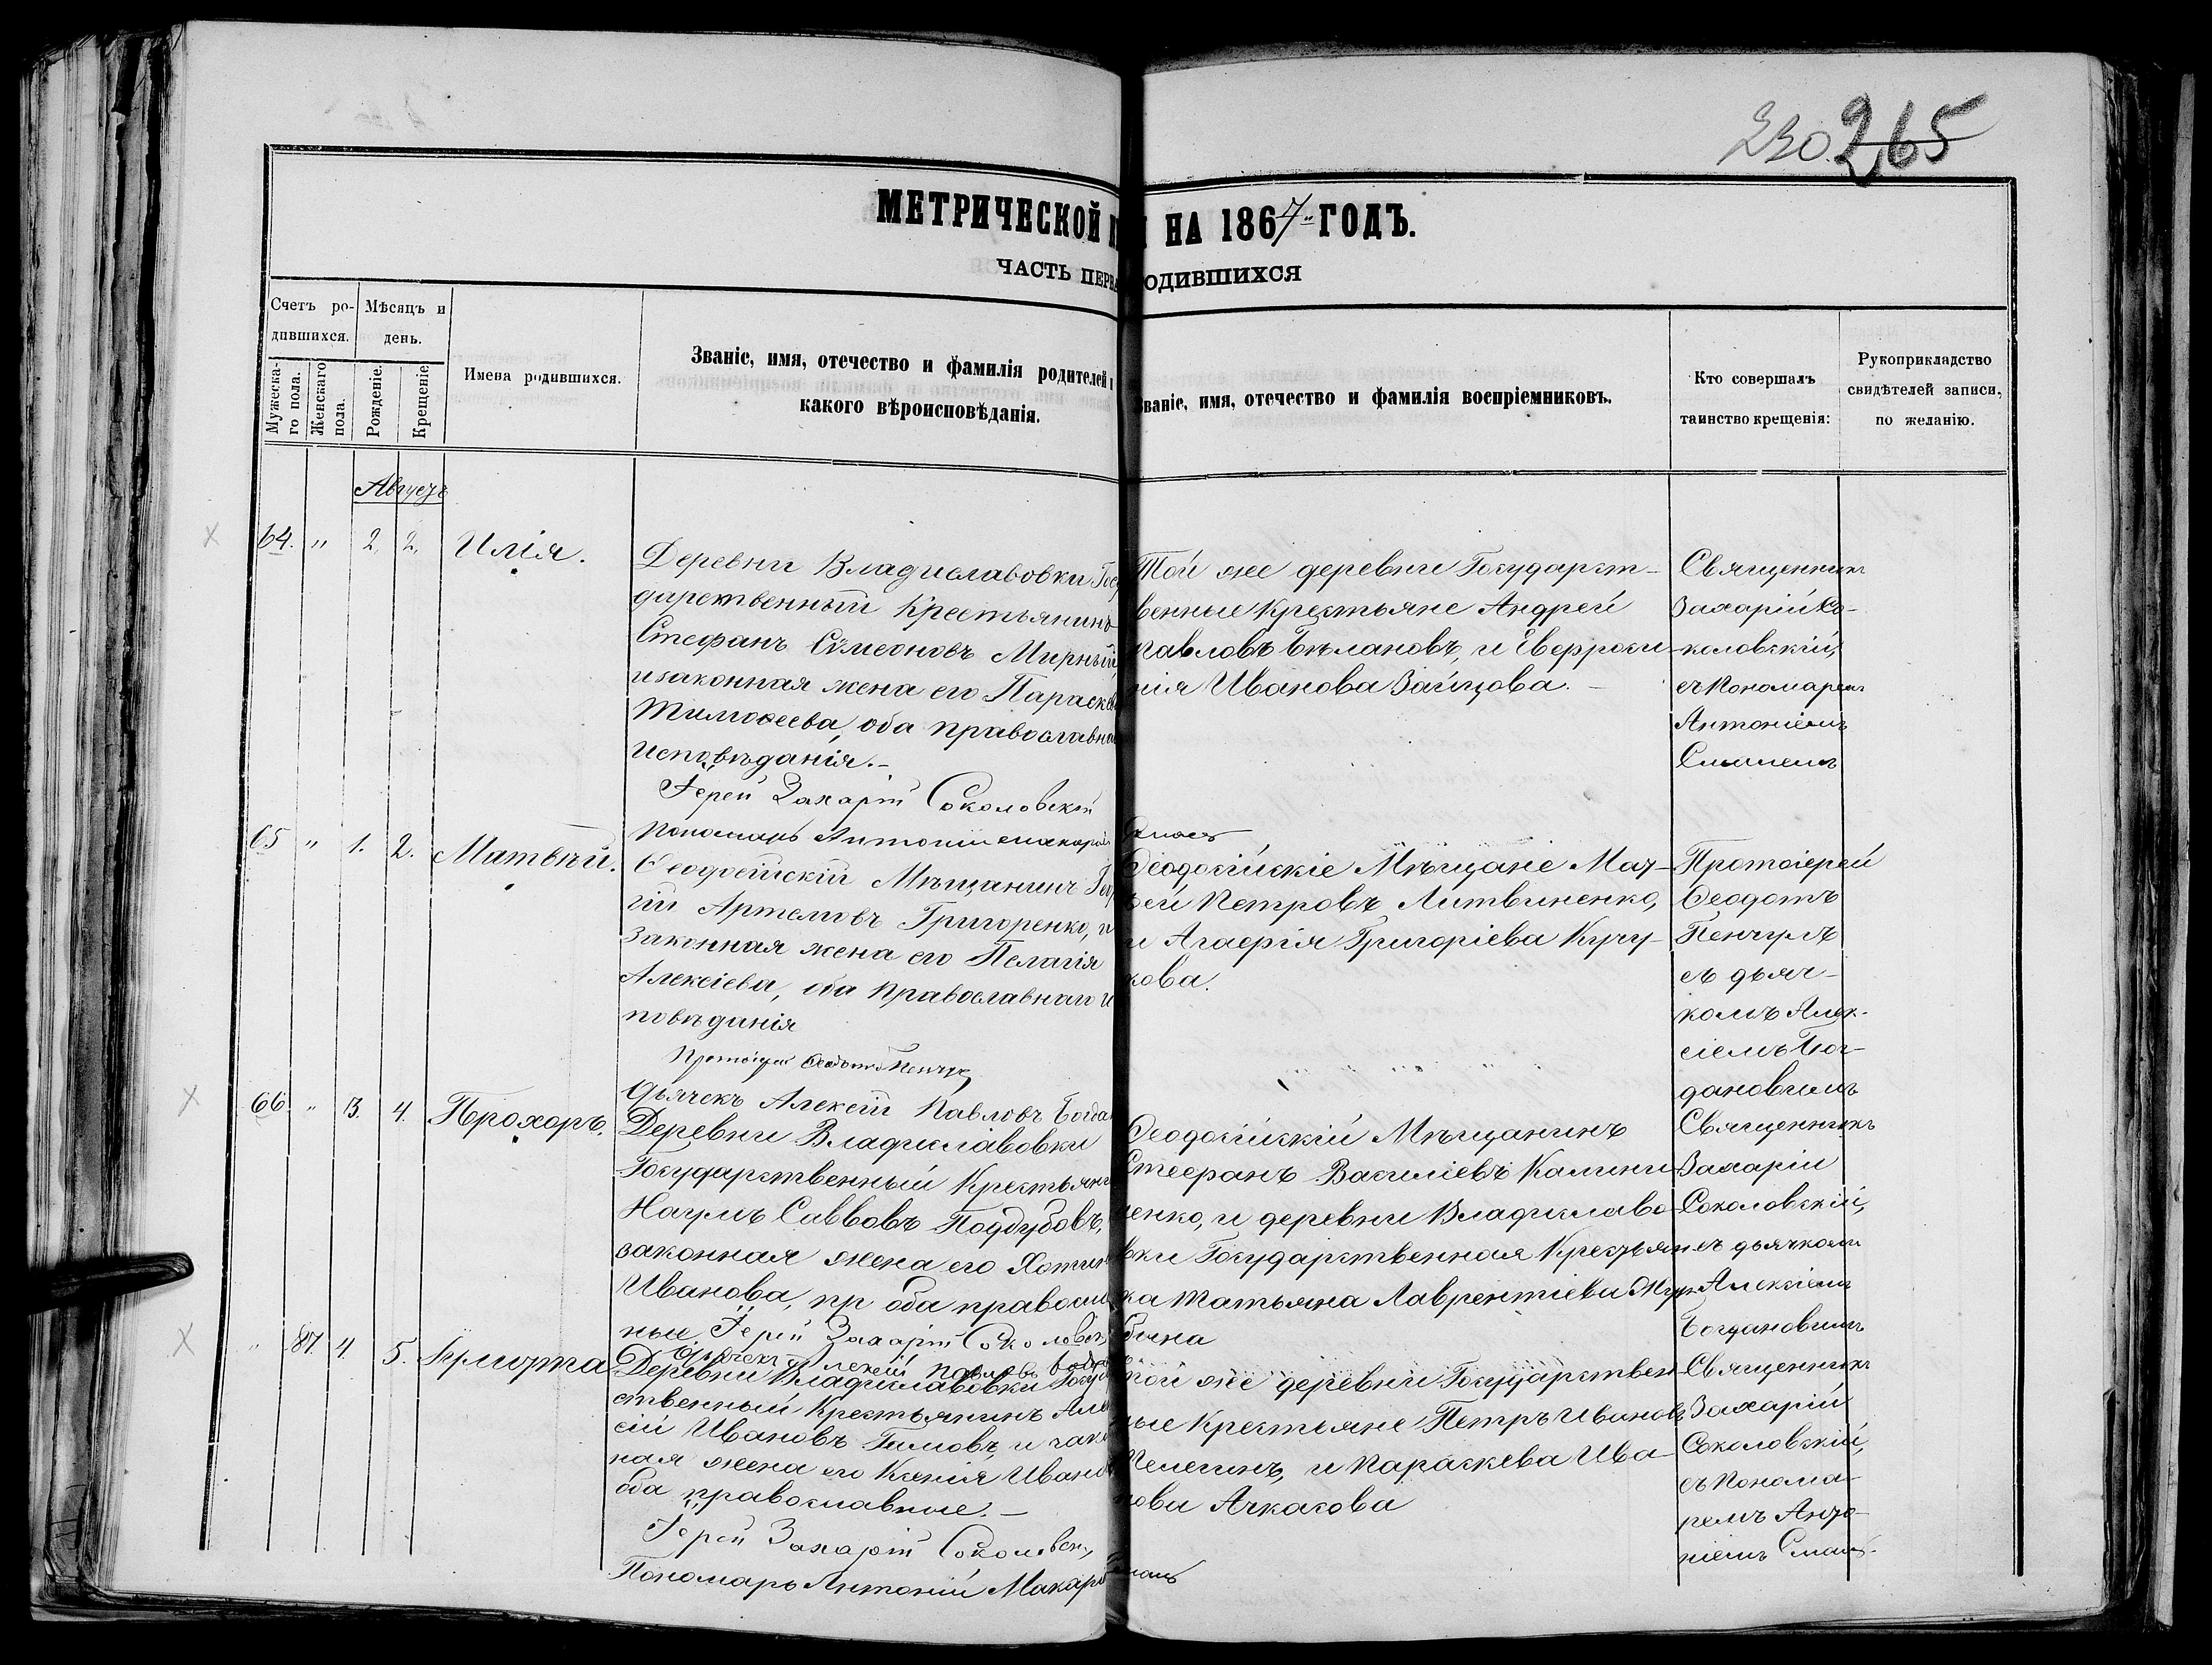 230. 265
МЕТРИЧЕСКОЙ НА 1867 ГОДЪ.
ЧАСТЬ ПЕРВА ОДИВШИХСЯ
Счетъ ро-
дившихся.
Мѣсяцъ и
день.
Мужеска-
го пола.
Женскаго
пола.
Рожденіе.
Крещеніе.
Имена родившихся.
Званіе, имя, отечество и фамилія родителей
какого вѣроисповѣданія.
Званіе, имя, отечество и фамилія воспріемниковъ.
Кто совершалъ
таинство крещенія:
Рукоприкладство
свидѣтелей записи,
по желанію.
Августъ
64. " 2. 2. Илія.
Деревни Владиславовки Госу
дарственный Крестьянинъ
Стефанъ Сѵмеоновъ Мирный,
и законная жена его Параске
Тимоѳеева, оба православна
исповѣданія.-
Іерей Захарій Соколовскій
Пономарь Антоній Макаровъ
Той же деревни Государст-
венные Крестьяне Андрей
Павловъ Бѣлановъ, и Евфроси-
нія Иванова Зайцова.-
Священникъ
Захарій Со-
коловскій,
съ Пономаремъ
Антоніемъ
65 " 1. 2. Матвѣй.
Ѳеодосійскій Мѣщанинъ Геор
гій Артемовъ Григоренко, и
законная жена его Пелагія
Алексіева, оба Православнаго и
повѣданія
Протоіерей Ѳеодотъ Пенчулъ
Дьячекъ Алексій Павловъ Богда
Ѳеодосійскіе Мѣщане Мат-
вей Петровъ Литвиненко,
и Агафія Григоріева Кучу-
кова.
Протоіерей
Ѳеодотъ
Пенчулъ
съ дьяч-
комъ Алек-
сіемъ Бог-
дановымъ
66 " 3. 4. Прохоръ.
Деревни Владиславовки
Государственный Крестьяни
Наумъ Саввовъ Поддубовъ,
законная жена его Хотин
Иванова, пр оба правосла
ные, Іерей Захарій Соколовск
Дьячекъ Алексій Павловъ Богда
Ѳеодосійскій Мѣщанинъ
Стефанъ Василіевъ Калини-
ченко, и деревни Владиславо-
вки Государственная Крестьян
ка Татьяна Лаврентіева
Священникъ
Захарій
Соколовскій,
съ дьячкомъ
Алексіемъ
Богдановымъ
" 87. 4. 5.
Деревни Владиславовки Госуд
ственный Крестьянинъ Але
сій Ивановъ Титовъ, и зако
ная жена его Ксенія Ивано
оба православные.-
Іерей Захарій Соколовск
Пономарь Антоній Макаро
Той же деревни Государствен-
ные Крестьяне Петръ Ивановъ
и Параскева Ива-
нова Ачкасова
Священникъ
Захарій
Соколовскій,
съ Понома-
ремъ Анто-
ніемъ